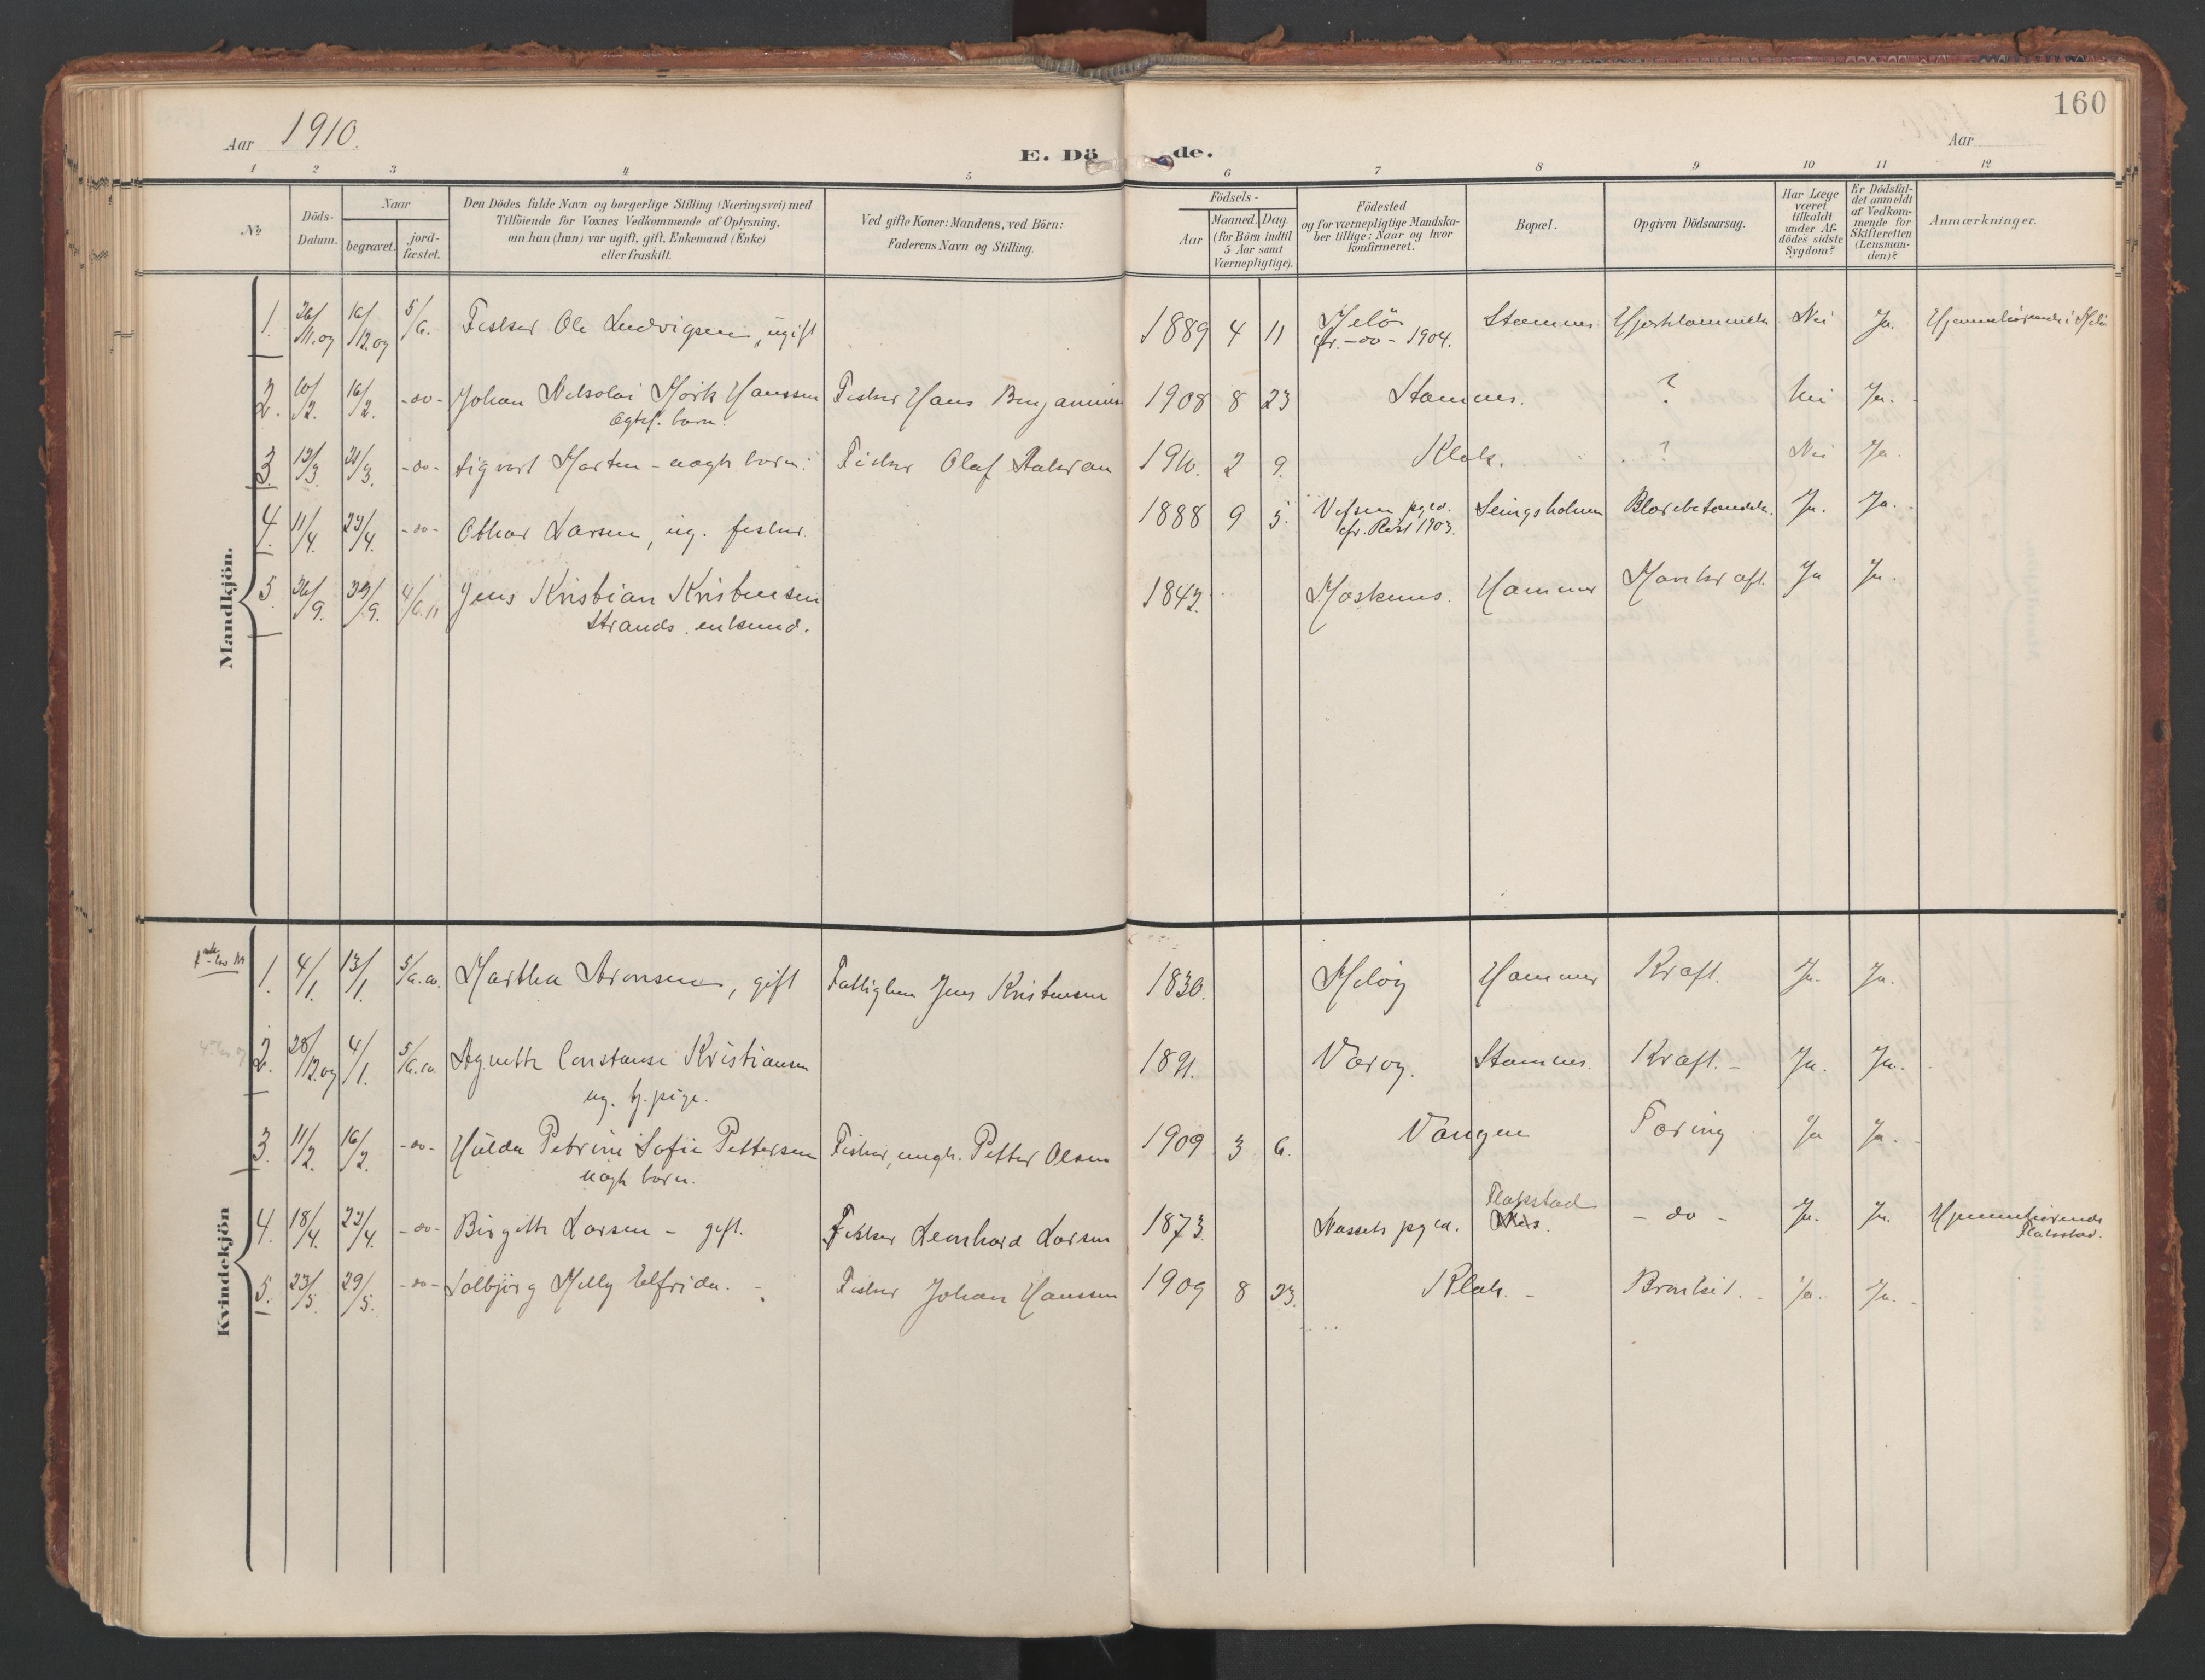 160
Aar 1910.
E. Döde.
Aar
1 2 3 4 5 6 7 8 9 10 11 12
No
Döds-Datum.
Naar
begravet.
jord-fæstet.
Den Dödes fulde Navn og borgerlige Stilling (Næringsvei) med
Tilföiende for Voxnes Vedkommende af Oplysning,
om han (hun) var ugift, gift, Enkemand (Enke)
eller fraskilt.
Ved gifte Koner: Mandens, ved Börn:
Faderens Navn og Stilling.
Födsels-
Aar
Maaned. Dag.
(for Börn indtil
5 Aar samt
Værnepligtige).
Födested
og for værnepligtige Mandska-
ber tillige: Naar og hvor
konfirmeret.
Bopæl.
Opgiven Dödsaarsag.
Har Læge
været
tilkaldt
under Af-
dödes sidste
Sygdom?
Er Dödsfal-
det anmeldt
af Vedkom-
mende for
Skifteretten
(Lensman-
den)?
Anmærkninger.
Mandkjön.
1. 26/11.09 16/12.09 5/6. Fisker Ole Ludvigsen, ugift 1889 4 11 Melö Stamnes Nei Ja.
cfr. -do- 1904.
2. 10/2. 16/2. -do- Johan Nikolai Mörk Hanssen Fisker Hans Benjamin 1908 8 23 Stamnes. ? Nei Ja.
ægtef. barn.
3. 13/3. 21/3. -do- Sigvart Morten - uægte barn. Fisker Olaf 1910. 2 9. Klak. ? Nei Ja.
4. 11/4. 23/4. -do- Othar Larsen, ug. fisker. 1888 9 5. Vefsen pgd. Blærebetændelse. Ja. Ja.
cfr. Röst 1903.
5. 26/9. 30/9. 4/6.11 Jens Kristian Kristensen 1842. Moskenes. Hammer Mavekræft. Ja Ja.
Strands. enkemd.
Kvindekjön
1. 4/1. 13/1. 5/6.10. Martha Aronsen, gift Fattiglem Jens Kristensen 1830. Melöy Hammer Kræft. Ja. Ja.
2. 28/12.09 4/1. 5/6.10. Agnethe Constanse Kristiansen 1891. Væroy. Stamnes. Kræft. - Ja. Ja.
ug. tj. pige.
3. 11/2. 16/2. -do- Hulda Petrine Sofie Pettersen Fisker, ungk. Petter Olsen 1909 3 6. Vangen Tæring Ja Ja.
uægte barn.
4. 18/4. 23/4. -do- Birgitte Larsen - gift. Fisker Leonhard Larsen 1873. Næssets pgd. Flakstad - do - Ja. Ja. Hjemmehörende
Flakstad.
5. 23/5. 29/5. -do- Solbjörg Milly Elfrida. - Fisker Johan Hanssen 1909 8 23. Klak. - Bronkit. - Ja. Ja. -